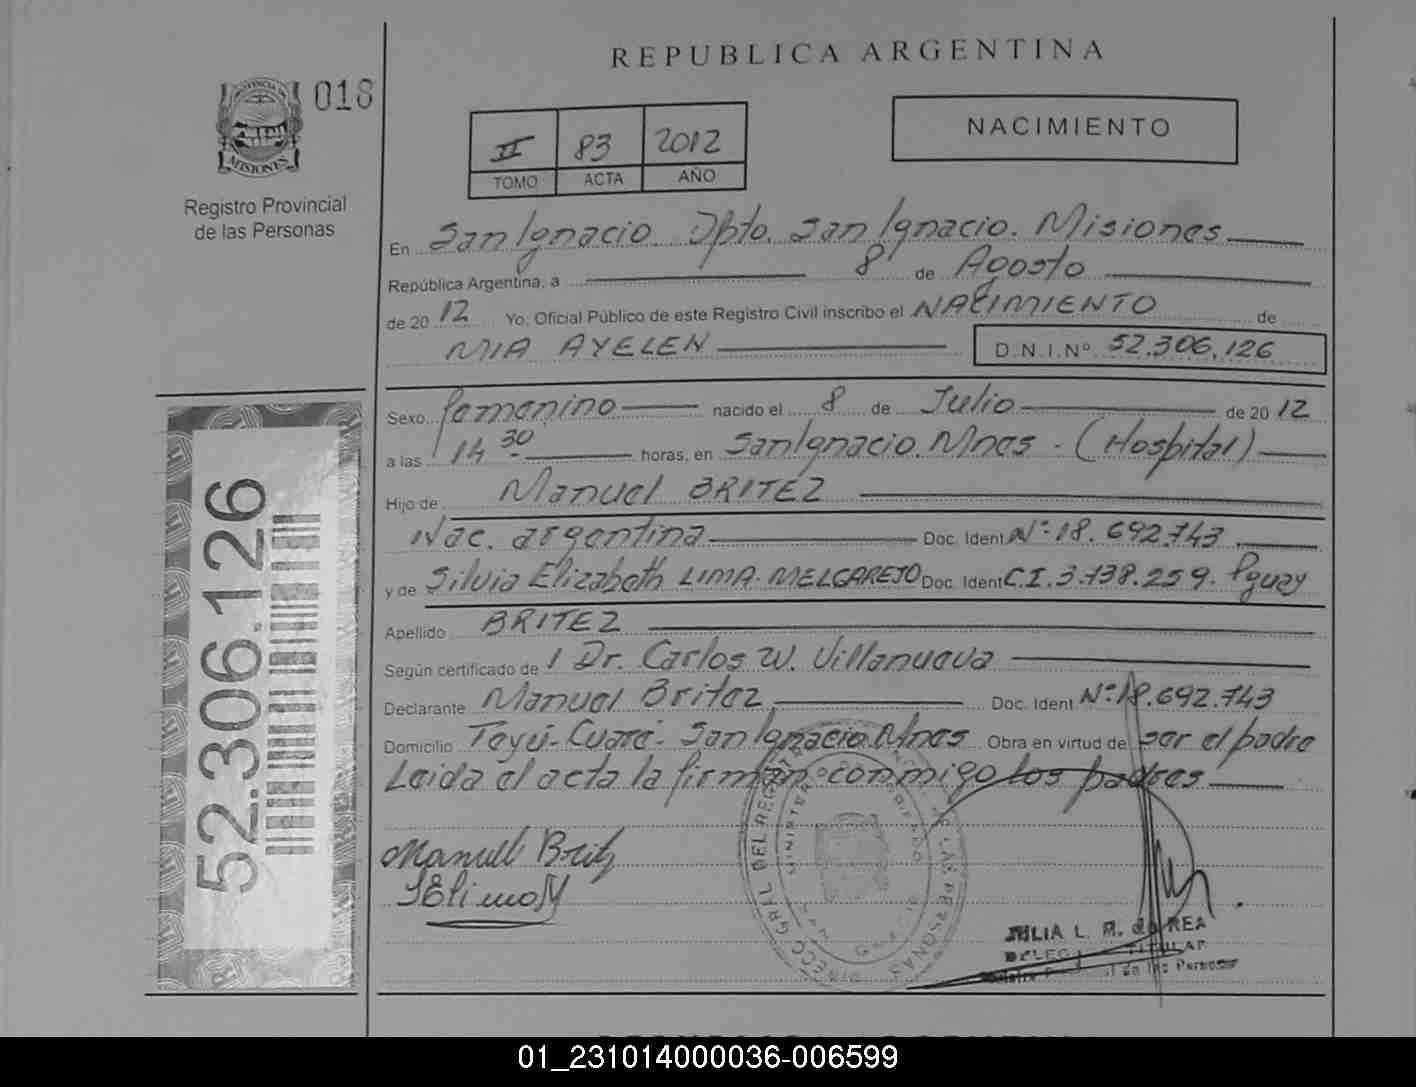 REPUBLICA ARGENTINA
018
PROVINCIA DE
MISIONES
Registro Provincial
de las Personas
II 83 2012
TOMO ACTA AÑO
NACIMIENTO
En San Ignacio. Dpto. San Ignacio. Misiones
República Argentina, a 8 de Agosto
de 2012 Yo, Oficial Público de este Registro Civil inscribo el NACIMIENTO de
MIA AYELEN D.N.I.Nº 52.306.126
Sexo femenino nacido el 8 de Julio de 2012
a las 14 30 horas, en San Ignacio. Mnes - (Hospital)
Hijo de Manuel BRITEZ
Nac. argentina Doc. Ident Nº 18.692.743
y de Silvia Elizabeth LIMA MELGAREJO Doc. Ident C.I. 3.738.259. Pguay
Apellido BRITEZ
Según certificado de 1 Dr. Carlos W. Villanueva
Declarante Manuel Britez Doc. Ident Nº 18.692.743
Domicilio Teyú-Cuaré- San Ignacio. Mnes Obra en virtud de ser el padre
Leida el acta la firman conmigo los padres
Manuel Britz
52.306.126
DIRECC GRAL DEL REGISTRO DE LAS PERSONAS
JULIA L. M. de REA
01_231014000036-006599